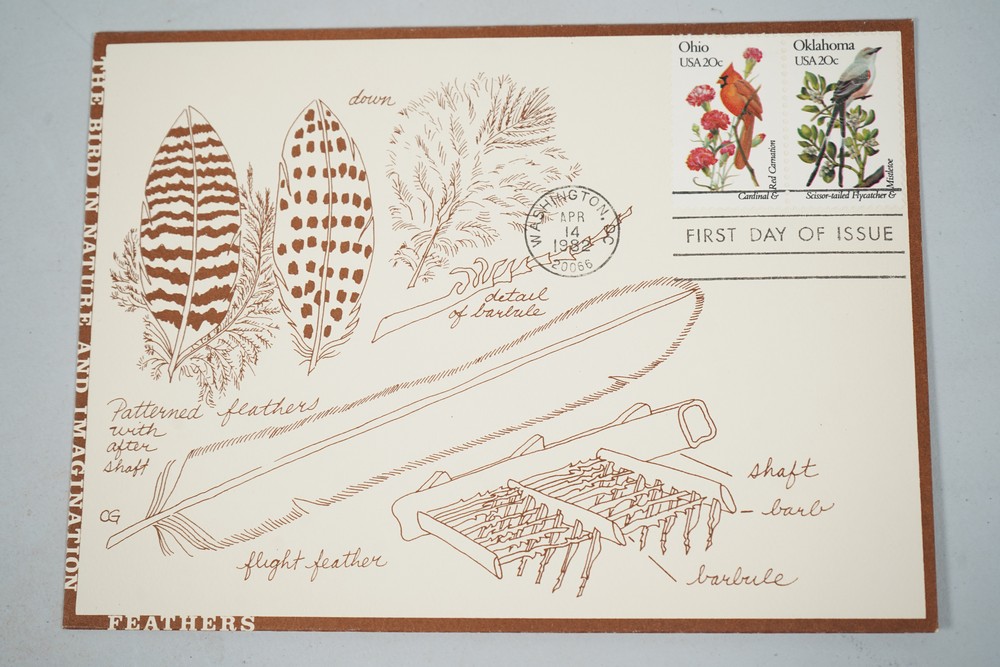 THE BIRD IN NATURE AND IMAGINATION
FEATHERS
Ohio
USA 20c
Red Carnation
Cardinal &
Oklahoma
USA 20c
Mistletoe
Scissor-tailed Flycatcher &
WASHINGTON, DC
APR
14
1982
20066
FIRST DAY OF ISSUE
down
detail
of barbule
Patterned feathers
with
after
shaft
CG
flight feather
shaft
barb
barbule